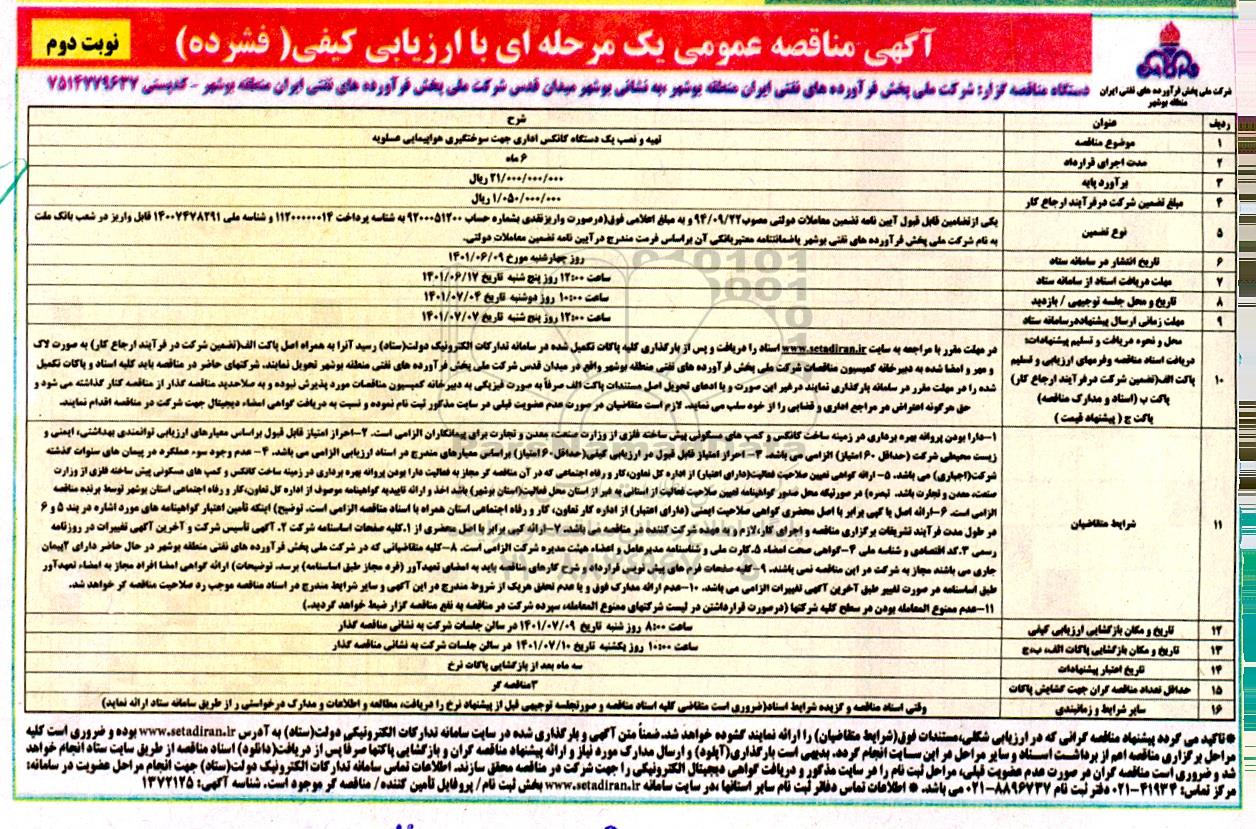 آگهی مناقصه عمومی یک مرحله ای با ارزیابی کیفی( فشرده)
نوبت دوم
شرکت ملی پخش فرآورده های نفتی ایران
منطقه بوشهر
دستگاه مناقصه گزار: شرکت ملی پخش فرآورده های نفتی ایران منطقه بوشهر ،به نشانی بوشهر میدان قدس شرکت ملی پخش فرآورده های نفتی ایران منطقه بوشهر - کدپستی ۷۵۱۴۷۷۹۶۳۷
ردیف عنوان شرح
۱ موضوع مناقصه تهیه و نصب یک دستگاه کانکس اداری جهت سوختگیری هواپیمایی عسلویه
۲ مدت اجرای قرارداد ۶ ماه
۳ برآورد پایه ۲۱/۰۰۰/۰۰۰/۰۰۰ ریال
۴ مبلغ تضمین شرکت درفرآیند ارجاع کار ۱/۰۵۰/۰۰۰/۰۰۰ ریال
۵ نوع تضمین یکی ازتضامین قابل قبول آیین نامه تضمین معاملات دولتی مصوب۹۴/۰۹/۲۲ و به مبلغ اعلامی فوق(درصورت واریزنقدی بشماره حساب ۹۲۰۰۰۵۱۲۰۰ به شناسه پرداخت ۱۱۲۰۰۰۰۰۰۱۴ و شناسه ملی ۱۴۰۰۷۴۷۸۲۹۱ قابل واریز در شعب بانک ملت
به نام شرکت ملی پخش فرآورده های نفتی بوشهر یاضمانتنامه معتبربانکی آن براساس فرمت مندرج درآیین نامه تضمین معاملات دولتی.
۶ تاریخ انتشار در سامانه ستاد روز چهارشنبه مورخ ۱۴۰۱/۰۶/۰۹
۷ مهلت دریافت اسناد از سامانه ستاد ساعت ۱۲:۰۰ روز پنج شنبه تاریخ ۱۴۰۱/۰۶/۱۷
۸ تاریخ و محل جلسه توجیهی / بازدید ساعت ۱۰:۰۰ روز دوشنبه تاریخ ۱۴۰۱/۰۷/۰۴
۹ مهلت زمانی ارسال پیشنهاددرسامانه ستاد ساعت ۱۲:۰۰ روز پنج شنبه تاریخ ۱۴۰۱/۰۷/۰۷
۱۰ محل و نحوه دریافت و تسلیم پیشنهادات:
دریافت اسناد مناقصه وفرمهای ارزیابی و تسلیم
پاکت الف(تضمین شرکت درفرآیند ارجاع کار)
پاکت ب (اسناد و مدارک مناقصه)
پاکت ج ( پیشنهاد قیمت )
در مهلت مقرر با مراجعه به سایت www.setadiran.ir اسناد را دریافت و پس از بارگذاری کلیه پاکات تکمیل شده در سامانه تدارکات الکترونیک دولت(ستاد) رسید آنرا به همراه اصل پاکت الف(تضمین شرکت در فرآیند ارجاع کار) به صورت لاک
و مهر و امضا شده به دبیرخانه کمیسیون مناقصات شرکت ملی پخش فرآورده های نفتی منطقه بوشهر واقع در میدان قدس شرکت ملی پخش فرآورده های نفتی منطقه بوشهر تحویل نمایند. شرکتهای حاضر در مناقصه باید کلیه اسناد و پاکات تکمیل
شده را در مهلت مقرر در سامانه بارگذاری نمایند درغیر این صورت و یا ادعای تحویل اصل مستندات پاکت الف صرفاً به صورت فیزیکی به دبیرخانه کمیسیون مناقصات مورد پذیرش نبوده و به صلاحدید مناقصه گذار از مناقصه کنار گذاشته می شود و
حق هرگونه اعتراض در مراجع اداری و قضایی را از خود سلب می نماید. لازم است متقاضیان در صورت عدم عضویت قبلی در سایت مذکور ثبت نام نموده و نسبت به دریافت گواهی امضاء دیجیتال جهت شرکت در مناقصه اقدام نمایند.
۱۱ شرایط متقاضیان ۱-دارا بودن پروانه بهره برداری در زمینه ساخت کانکس و کمپ های مسکونی پیش ساخته فلزی از وزارت صنعت، معدن و تجارت برای پیمانکاران الزامی است. ۲-احراز امتیاز قابل قبول براساس معیارهای ارزیابی توانمندی بهداشتی، ایمنی و
زیست محیطی شرکت (حداقل ۶۰ امتیاز) الزامی می باشد. ۳- احراز امتیاز قابل قبول در ارزیابی کیفی(حداقل۶۰امتیاز) براساس معیارهای مندرج در اسناد ارزیابی الزامی می باشد. ۴- عدم وجود سوء عملکرد در پیمان های سنوات گذشته
شرکت(اجباری) می باشد. ۵- ارائه گواهی تعیین صلاحیت فعالیت(دارای اعتبار) از اداره کل تعاون،کار و رفاه اجتماعی که در آن مناقصه گر مجاز به فعالیت دارا بودن پروانه بهره برداری در زمینه ساخت کانکس و کمپ های مسکونی پیش ساخته فلزی از وزارت
صنعت، معدن و تجارت باشد. تبصره) در صورتیکه محل صدور گواهینامه تعیین صلاحیت فعالیت از استانی به غیر از استان محل فعالیت(استان بوشهر) باشد اخذ و ارائه تاییدیه گواهینامه موصوف از اداره کل تعاون،کار و رفاه اجتماعی استان بوشهر توسط برنده مناقصه
الزامی است. ۶-ارائه اصل یا کپی برابر با اصل محضری گواهی صلاحیت ایمنی (دارای اعتبار) از اداره کار تعاون، کار و رفاه اجتماعی استان همراه با اسناد مناقصه الزامی است. توضیح) اینکه تأمین اعتبار گواهینامه های مورد اشاره در بند ۵ و ۶
در طول مدت فرآیند تشریفات برگزاری مناقصه و اجرای کار،لازم و به عهده شرکت کننده در مناقصه می باشد. ۷-ارائه کپی برابر با اصل محضری از ۱.کلیه صفحات اساسنامه شرکت ۲. آگهی تأسیس شرکت و آخرین آگهی تغییرات در روزنامه
رسمی ۳.کد اقتصادی و شناسه ملی ۴-گواهی صحت امضاء ۵.کارت ملی و شناسنامه مدیرعامل و اعضاء هیئت مدیره شرکت الزامی است. ۸-کلیه متقاضیانی که در شرکت ملی پخش فرآورده های نفتی منطقه بوشهر در حال حاضر دارای ۲پیمان
جاری می باشند مجاز به شرکت در این مناقصه نمی باشند. ۹-کلیه صفحات فرم های پیش نویس قرارداد و شرح کارهای مناقصه باید به امضای تعهدآور (فرد مجاز طبق اساسنامه) برسد. توضیحات) ارائه گواهی امضا افراد مجاز به امضاء تعهدآور
طبق اساسنامه در صورت تغییر طبق آخرین آگهی تغییرات الزامی می باشد. ۱۰-عدم ارائه مدارک فوق و یا عدم تحقق هریک از شروط مندرج در این آگهی و سایر شرایط مندرج در اسناد مناقصه موجب رد صلاحیت مناقصه گر خواهد شد.
۱۱-عدم ممنوع المعامله بودن در سطح کلیه شرکتها (درصورت قرارداشتن در لیست شرکتهای ممنوع المعامله، سپرده شرکت در مناقصه به نفع مناقصه گزار ضبط خواهد گردید.)
۱۲ تاریخ و مکان بازگشایی ارزیابی کیفی ساعت ۸:۰۰ روز شنبه تاریخ ۱۴۰۱/۰۷/۰۹ در سالن جلسات شرکت به نشانی مناقصه گذار
۱۳ تاریخ و مکان بازگشایی پاکات الف، ب،ج ساعت ۱۰:۰۰ روز یکشنبه تاریخ ۱۴۰۱/۰۷/۱۰ در سالن جلسات شرکت به نشانی مناقصه گذار
۱۴ تاریخ اعتبار پیشنهادات سه ماه بعد از بازگشایی پاکات نرخ
۱۵ حداقل تعداد مناقصه گران جهت گشایش پاکات ۳مناقصه گر
۱۶ سایر شرایط و زمانبندی وقتی اسناد مناقصه و گزیده شرایط اسناد(ضروری است متقاضی کلیه اسناد مناقصه و صورتجلسه توجیهی قبل از پیشنهاد نرخ را دریافت، مطالعه و اطلاعات و مدارک درخواستی را از طریق سامانه ستاد ارائه نماید)
*تاکید می گردد پیشنهاد مناقصه گرانی که در ارزیابی شکلی،مستندات فوق(شرایط متقاضیان) را ارائه نمایند گشوده خواهد شد.ضمناً متن آگهی و بارگذاری شده در سایت سامانه تدارکات الکترونیکی دولت(ستاد) به آدرس www.setadiran.ir بوده و ضروری است کلیه
مراحل برگزاری مناقصه اعم از برداشت اسناد و سایر مراحل در این سایت انجام گردد. بدیهی است بارگذاری(آپلود) و ارسال مدارک مورد نیاز و ارائه پیشنهاد مناقصه گران و بازگشایی پاکتها صرفا پس از دریافت(دانلود) اسناد مناقصه از طریق سایت ستاد انجام خواهد
شد و ضروری است مناقصه گران در صورت عدم عضویت قبلی، مراحل ثبت نام را در سایت مذکور و دریافت گواهی دیجیتال الکترونیکی را جهت شرکت در مناقصه محقق سازند. اطلاعات تماس سامانه تدارکات الکترونیک دولت(ستاد) جهت انجام مراحل عضویت در سامانه:
مرکز تماس: ۴۱۹۳۴-۰۲۱ دفتر ثبت نام ۸۸۹۶۷۳۷-۰۲۱ می باشد. * اطلاعات تماس دفاتر ثبت نام سایر استانها ،در سایت سامانه www.setadiran.ir بخش ثبت نام / پروفایل تأمین کننده / مناقصه گر موجود است. شناسه آگهی: ۱۳۷۲۱۲۵